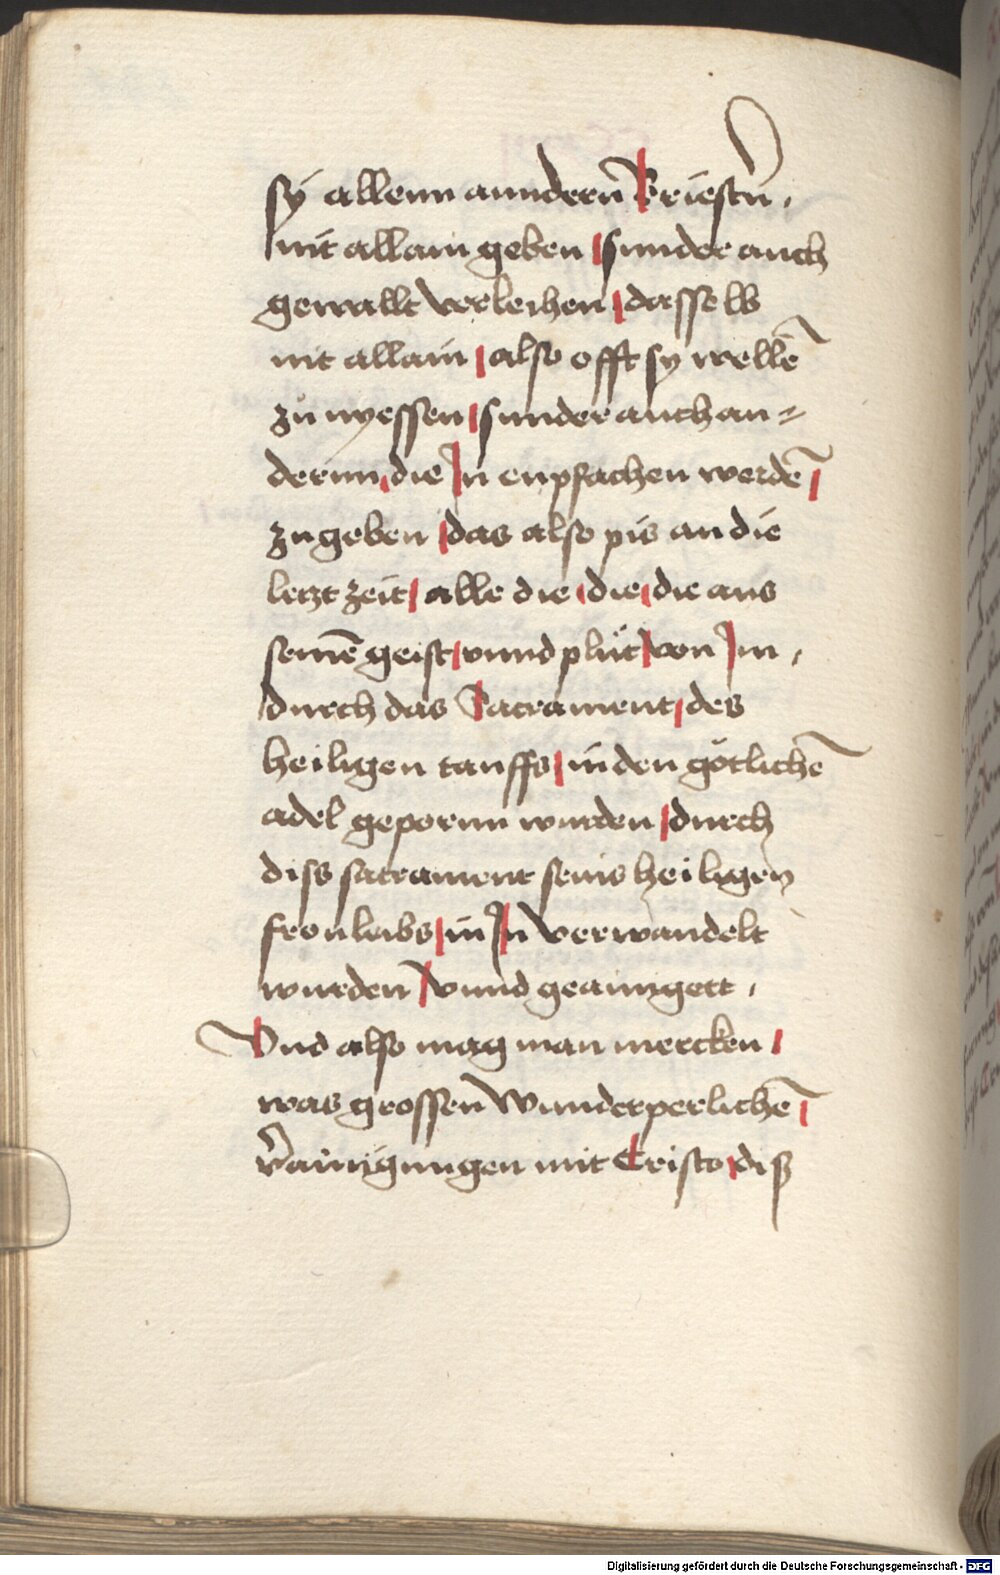 sy allenn anndern̄ Briestn̄ /
nit allain geben | sunder auch
gewallt verleihen | dasselb
nit allain | also offt sy wellē
zů nyessen | sunder auch an=
dernn, die In enpfachen werdē |
zu geben | das also pis an die
letzt zeit | alle die | die | die aus
seinē geist | vnnd plůt | von Im /
durch das Sacrament | des
heiligen tauffs | in den götlichē
adel gepornn wurden | durch
diss sacrament seins heiligen
fronleibs | in In verwandelt
wurden | vnnd geainigett /
Vnd also mag man mercken |
was grossen wunderperlichē |
v̄ainigungen mit Cristo | diß
Digitalisierung gefördert durch die Deutsche Forschungsgemeinschaft - DFG